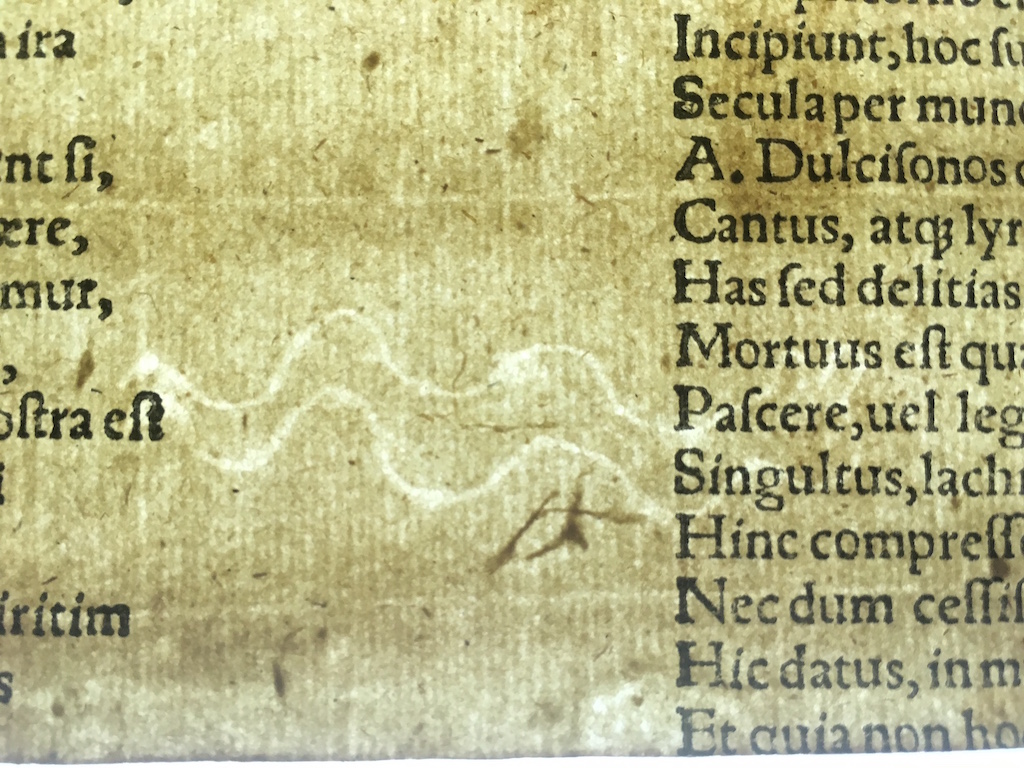 ira
nt ſi,
ære,
mur,
oſtra eſt
iritim
s
Incipiunt, hoc ſu
Secula per mund
A. Dulciſonos
Cantus, atqꝫ lyr
Has ſed delitias
Mortuus eſt qua
Paſcere, uel leg
Singultus, lachr
Hinc compreſſ
Nec dum ceſſiſ
Hic datus, in m
Et quia non hoc